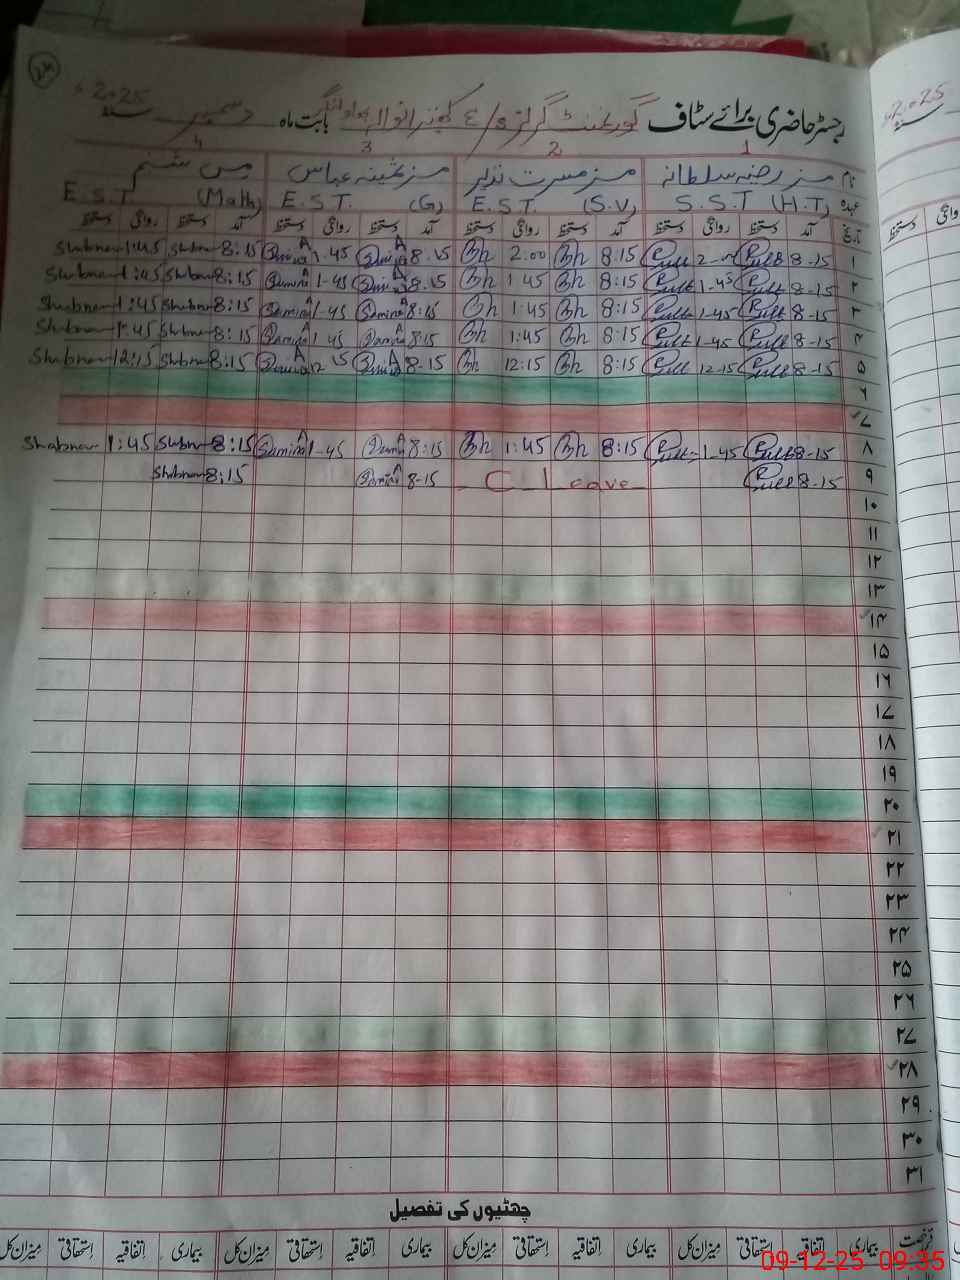 24
رجسٹر حاضری برائے سٹاف گورنمنٹ گرلز بابت ماہ دسمبر سنہ 2025ء
1 2 3 4
نام مسز رضیہ سلطانہ مسز مسرت نذیر مسز ثمینہ عباس مس شبنم
عہدہ S.S.T (H.T) E.S.T. (S.V) E.S.T. (G) E.S.T (Math)
تاریخ آمد دستخط روانگی دستخط آمد دستخط روانگی دستخط آمد دستخط روانگی دستخط آمد دستخط روانگی دستخط
۱ 8-15 2-00 8:15 2:00 8:15 1-45 8:15 Shabnam 1:45 Shabnam
۲ 8-15 1-45 8:15 1 45 8:15 1-45 8:15 Shabnam 1:45 Shabnam
۳ 8-15 1-45 8:15 1:45 8:15 1-45 8:15 Shabnam 1:45 Shabnam
۴ 8-15 1-45 8:15 1:45 8:15 1-45 8:15 Shabnam 1:45 Shabnam
۵ 8-15 12-15 8:15 12:15 8-15 12 15 8:15 Shabnam 12:15 Shabnam
۶
۷
۸ 8-15 1-45 8:15 1:45 8:15 1-45 8:15 Shabnam 1:45 Shabnam
۹ 8-15 C_Leave 8-15 8:15 Shabnam
۱۰
۱۱
۱۲
۱۳
۱۴
۱۵
۱۶
۱۷
۱۸
۱۹
۲۰
۲۱
۲۲
۲۳
۲۴
۲۵
۲۶
۲۷
۲۸
۲۹
۳۰
۳۱
چھٹیوں کی تفصیل
بیماری اتفاقیہ استحقاقی میزان کل بیماری اتفاقیہ استحقاقی میزان کل بیماری اتفاقیہ استحقاقی میزان کل بیماری اتفاقیہ استحقاقی میزان کل
09-12-25 09:35
سنہ 2025ء
روانگی دستخط